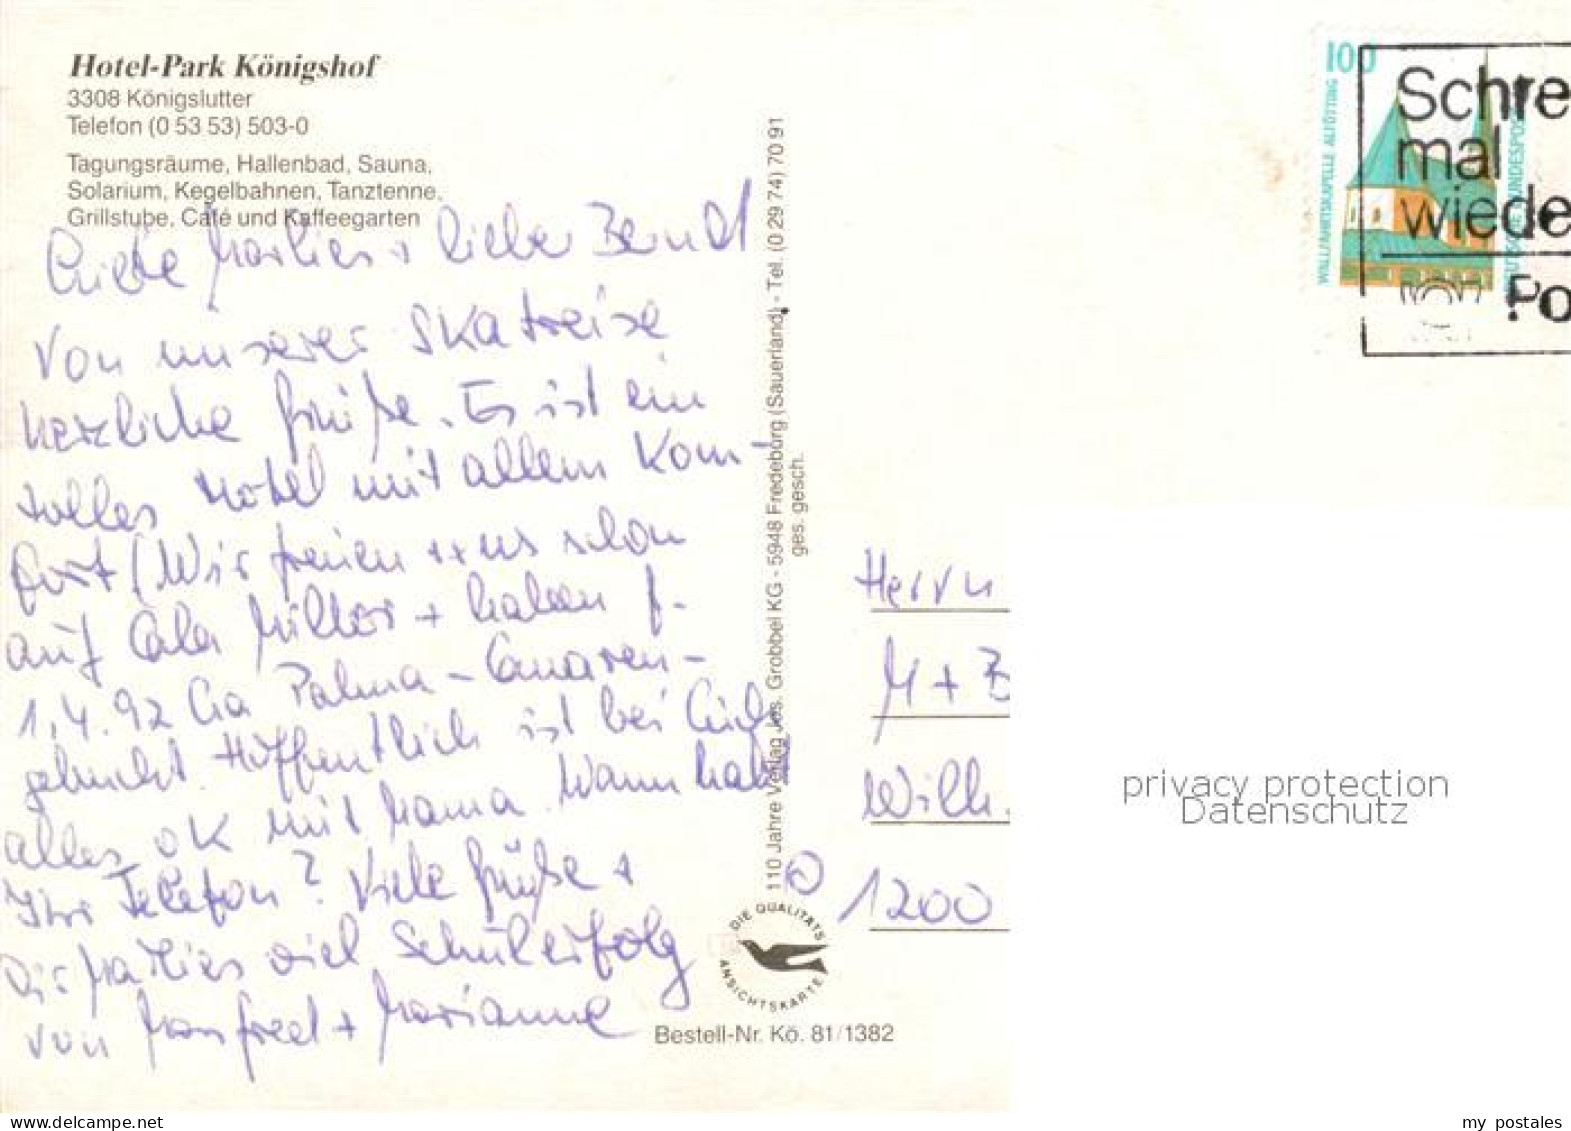 Hotel-Park Königshof
3308 Königslutter
Telefon (0 53 53) 503-0
Tagungsräume, Hallenbad, Sauna,
Solarium, Kegelbahnen, Tanztenne,
Grillstube, Café und Kaffeegarten
Liebe Marlies + lieber Berndt
Von unserer Skatreise
herzliche Grüße. Es ist ein
tolles Hotel mit allem Kom-
fort (Wir freuen uns schon
auf Cala Millor + haben f.
1.4.92 La Palma - Canaren -
gebucht. Hoffentlich ist bei Euch
alles OK mit Mama. Wann habt
Ihr Telefon? Viele Grüße +
Dir Marlies viel Schülerfolg
von Manfred + Marianne
110 Jahre Verlag Jos. Grobbel KG - 5948 Fredeburg (Sauerland) - Tel. (0 29 74) 70 91
ges. gesch.
DIE QUALITÄTS
ANSICHTSKARTE
Bestell-Nr. Kö. 81/1382
100
WALLFAHRTSKAPELLE ALTÖTTING
DEUTSCHE BUNDESPOST
Schre
mal
wiede
Po
Herrn
M + B
Wilh.
O 1200
privacy protection
Datenschutz
my postales